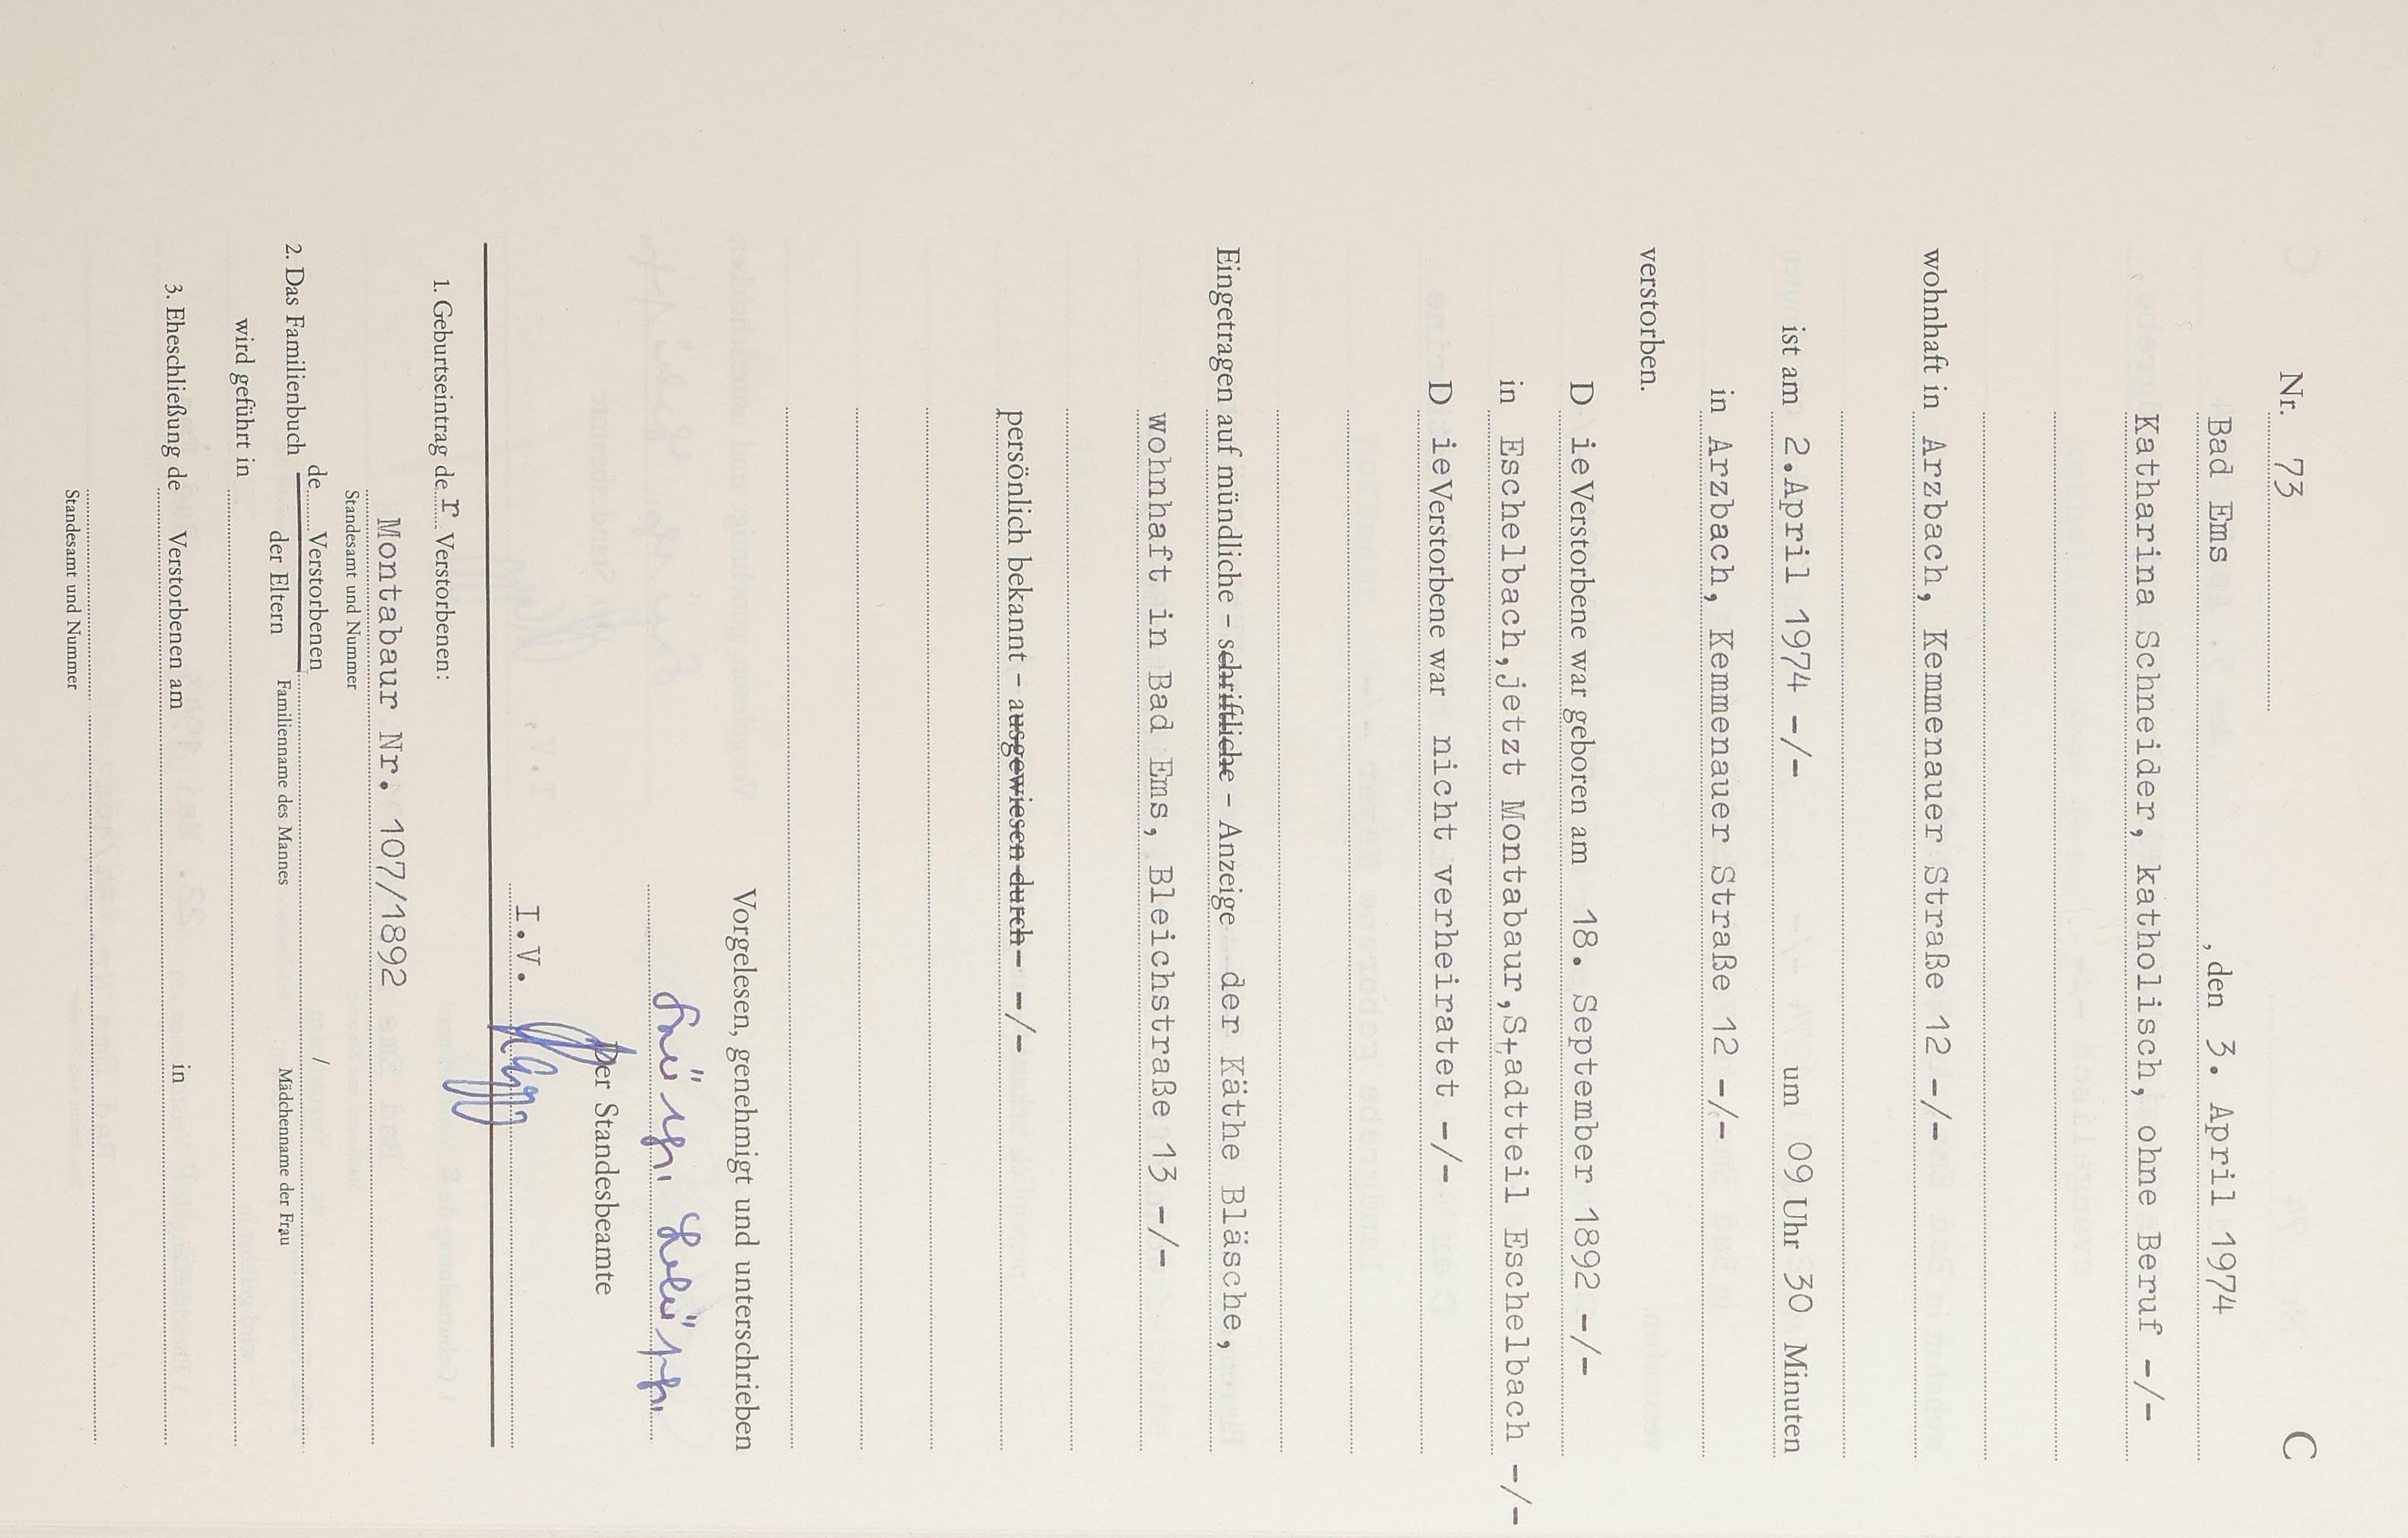 C
Nr. 73
Bad Ems, den 3. April 1974
Katharina Schneider, katholisch, ohne Beruf -/-
wohnhaft in Arzbach, Kemmenauer Straße 12 -/-
ist am 2.April 1974 -/- um 09 Uhr 30 Minuten
in Arzbach, Kemmenauer Straße 12 -/-
verstorben.
Die Verstorbene war geboren am 18. September 1892 -/-
in Eschelbach,jetzt Montabaur,Stadtteil Eschelbach -/-
Die Verstorbene war nicht verheiratet -/-
Eingetragen auf mündliche - schriftliche - Anzeige der Käthe Bläsche,
wohnhaft in Bad Ems, Bleichstraße 13 -/-
persönlich bekannt - ausgewiesen durch - -/-
Vorgelesen, genehmigt und unterschrieben
Der Standesbeamte
I.V.
1. Geburtseintrag der Verstorbenen:
Montabaur Nr. 107/1892
Standesamt und Nummer
2. Das Familienbuch de Verstorbenen /
der Eltern Familienname des Mannes Mädchenname der Frau
wird geführt in
3. Eheschließung de Verstorbenen am in
Standesamt und Nummer